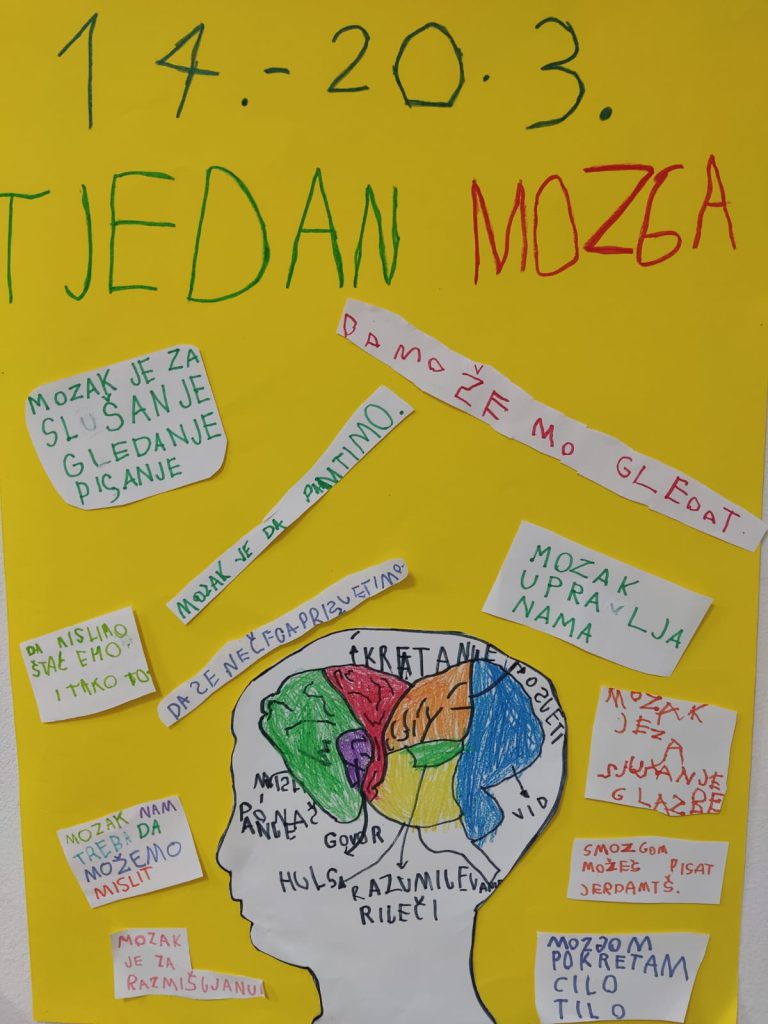 14.-20.3.
TJEDAN MOZGA
DA MOŽEMO GLEDAT.
MOZAK JE ZA
SLUŠANJE
GLEDANJE
PISANJE
MOZAK JE DA PAMTIMO.
MOZAK
UPRAVLJA
NAMA
DA SE NEČEGA PRISJETIMO.
DA MISLIMO
ŠTAĆEMO
I TAKO TO
KRETANJE
MOZAK
JEZA
SLUŠANJE
GLAZBE
VID
PONAŠ
ANJE
GOVOR
RAZUMIJEVANJE
RIJEČI
MOZAK NAM
TREBA DA
MOŽEMO
MISLIT
SMOZGOM
MOŽEŠ PISAT
MOZAK
JE ZA
MOZGOM
POKREĆAM
CILO
TILO